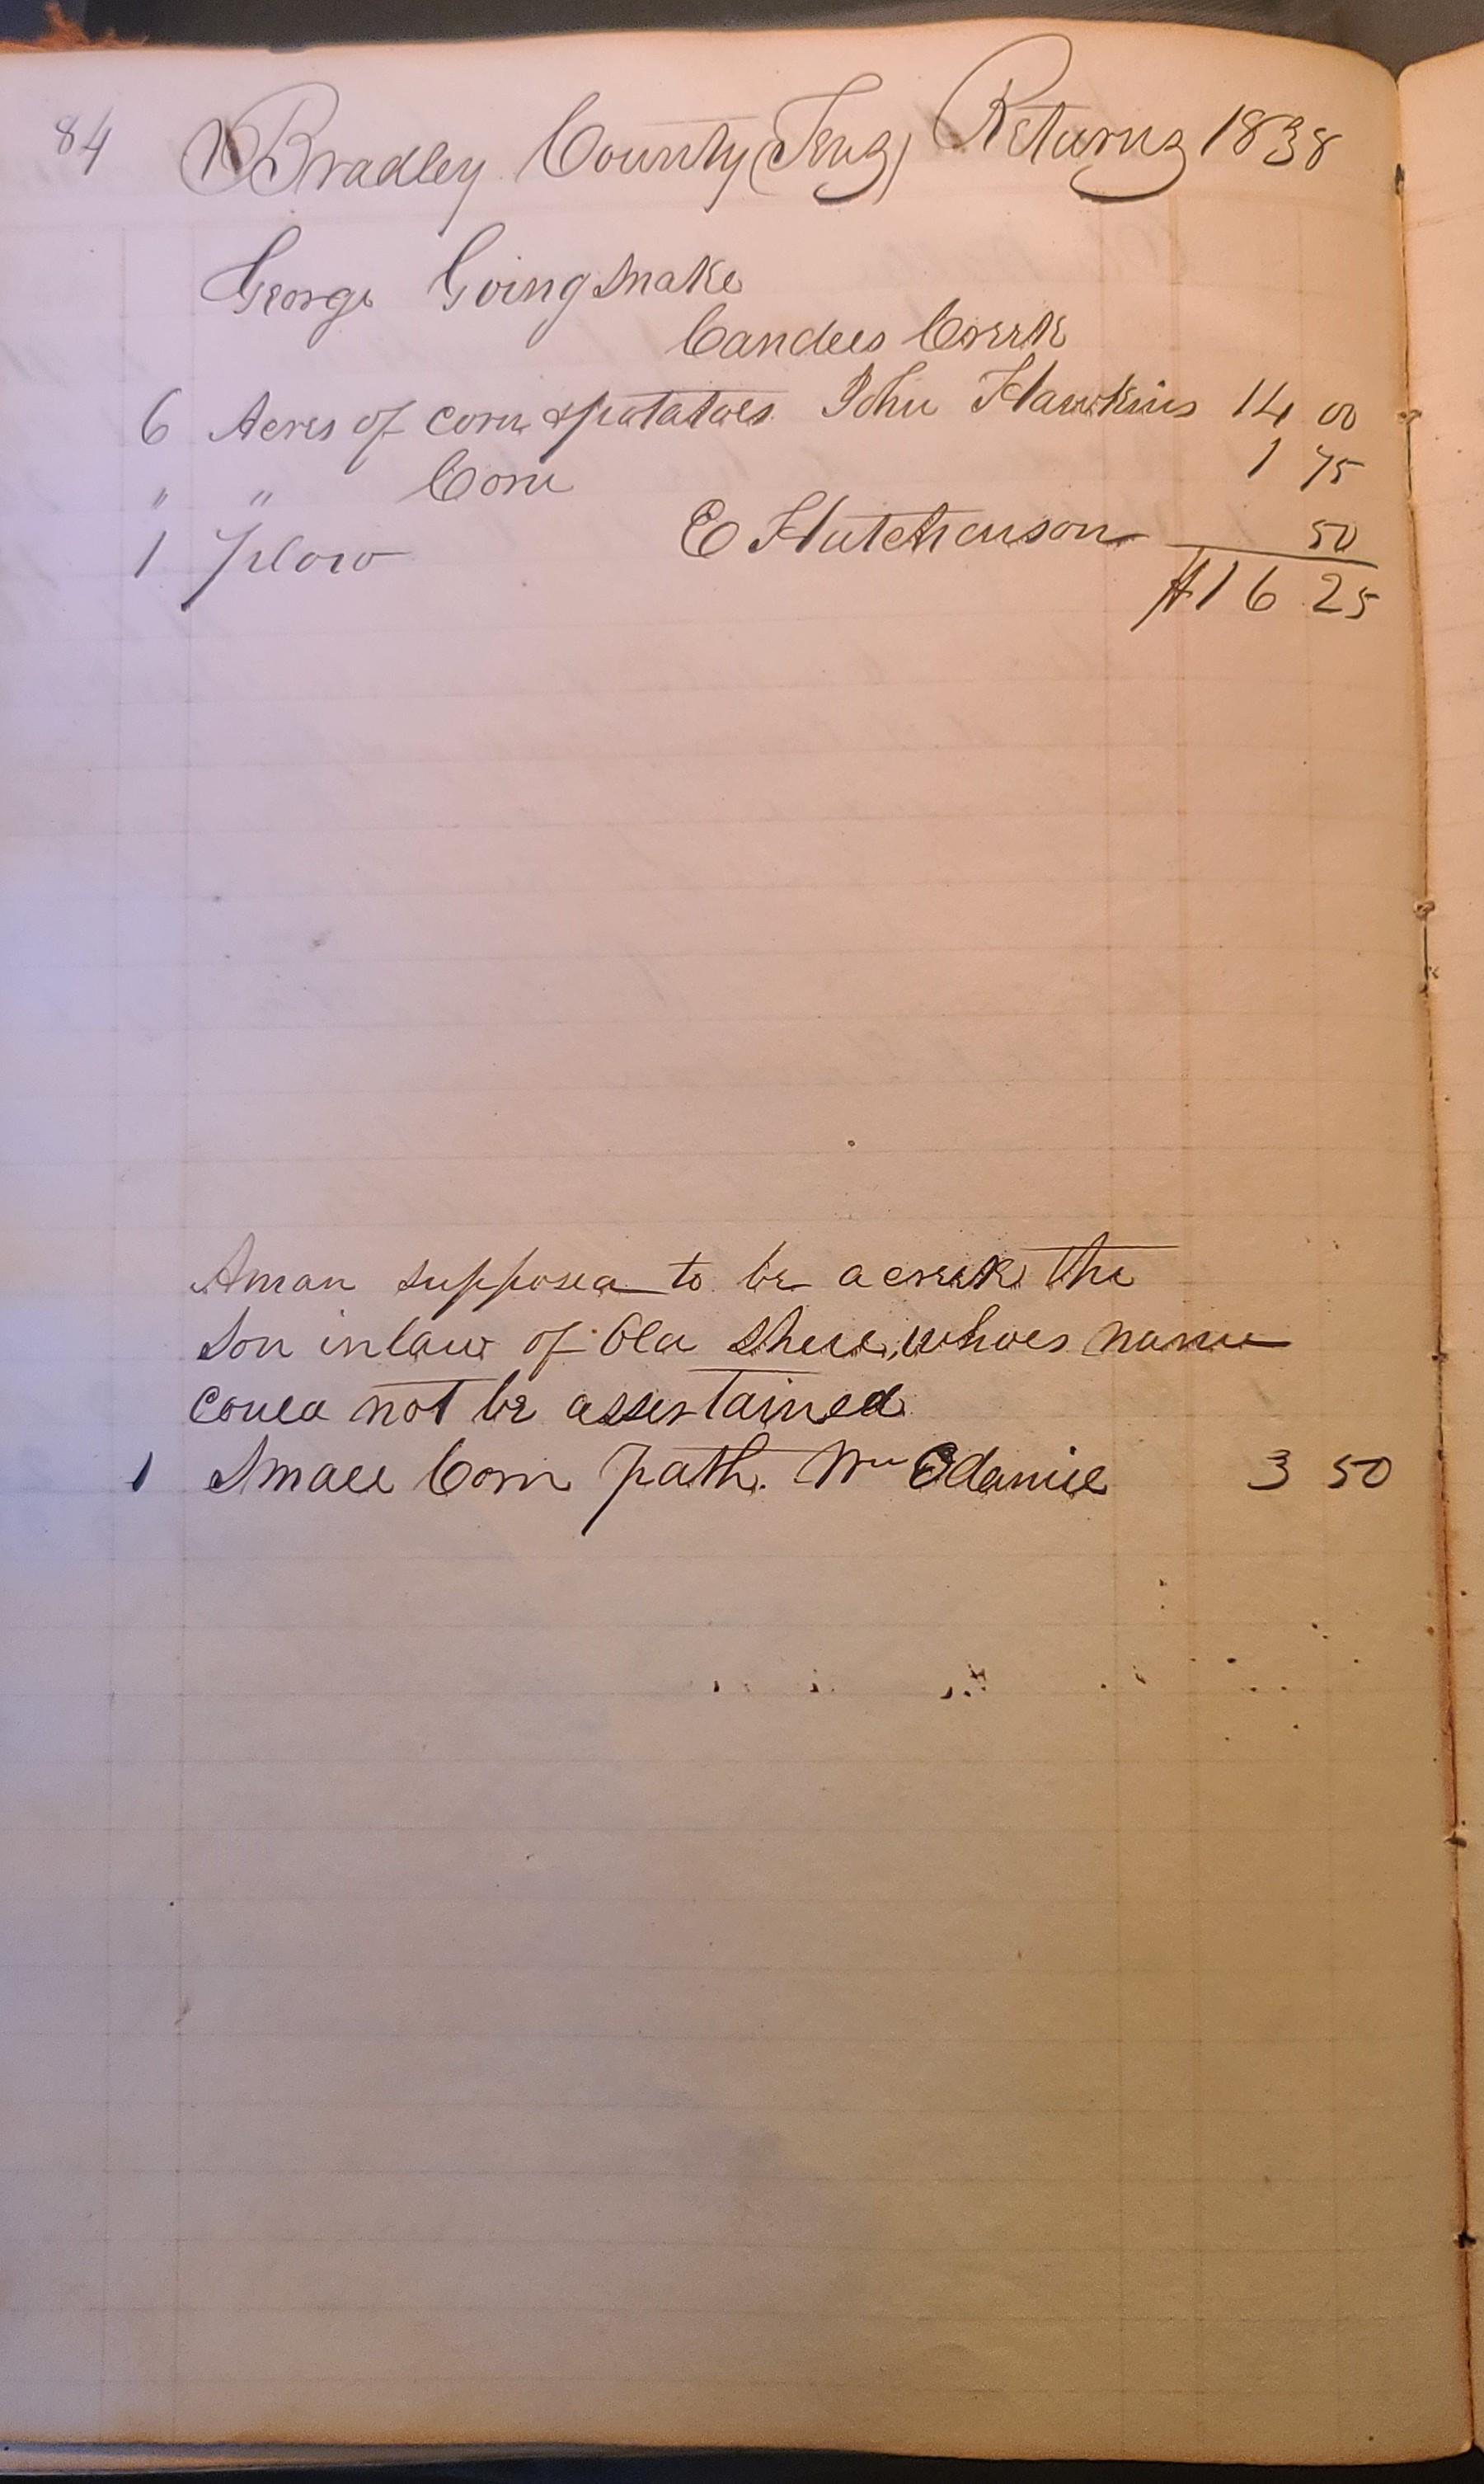 84 Bradley County (Teng) Returns 1838
George Goingsnake
Candees Creek
6 Acres of corn & potatoes John Hawkins 14 00
" " Corn 1 75
1 Plow E Hutchenson 50
$16 25
A man supposed to be a creek the
Son in law of Old whoes name
could not be assertained
1 Small Corn path. Wm Odaniel 3 50